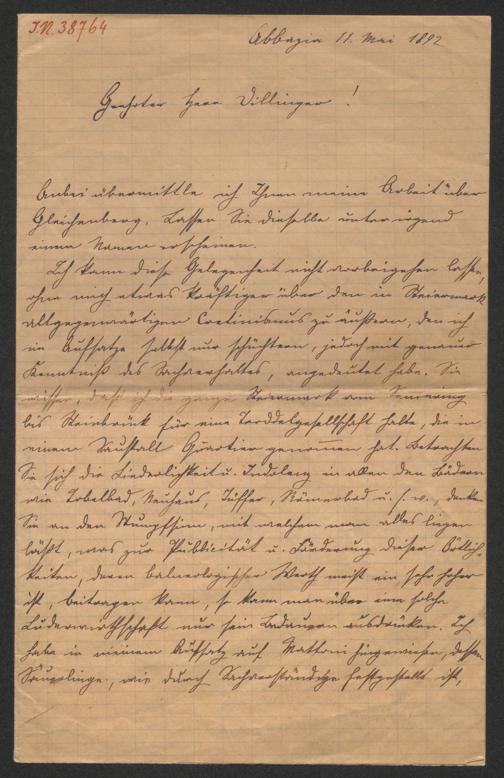 I.N. 38764
Abbazia 11. Mai 1892
Geehrter Herr Dillinger!
Anbei übermittle ich Ihnen meine Arbeit über
Gleichenberg. Lassen Sie dieselbe unter irgend
einem Namen erscheinen.
Ich kann diese Gelegenheit nicht vorbeigehen lassen,
ohne mich etwas kräftiger über den in Steiermark
allgegenwärtigen Cretinismus zu äußern, den ich
im Aufsatze selbst nur schüchtern, jedoch mit genauer
Kenntniß des Sachverhaltes, angedeutet habe. Sie
wissen, daß ich die ganze Steiermark vom Semmering
bis Steinbrück für eine Trotdelgesellschaft halte, die in
einem Saustall Quartier genommen hat. Betrachten
Sie sich die Liederligkeit u. Indolenz in allen den Bädern
wie Tobelbad, Neuhaus, Tüffer, Römerbad u. s. w., denken
Sie an den Stumpfsinn, mit welchem man alles liegen
läßt, was zur Publicität u. Förderung dieser Örtlich-
keiten, deren balneologischer Werth meist ein sehr hoher
ist, beitragen kann, so kann man über eine solche
Luderwirthschaft nur sein Bedauern ausdrücken. Ich
habe in meinem Aufsatz auf Mattoni hingewiesen, dessen
Säuerlinge, wie durch Sachverständige festgestellt ist,